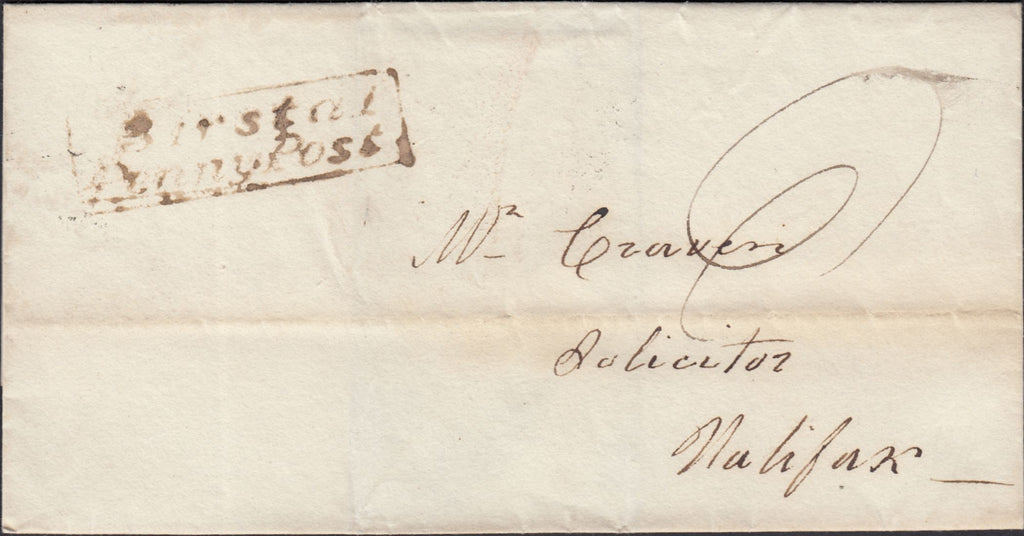 Birstal
Penny Post
Mr Craven
Solicitor
Halifax